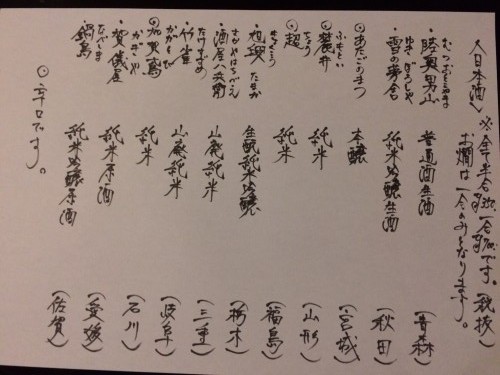 〈日本酒〉 ※全て半合 一合 です。(税抜)
お燗は一合のみとなります。
むつおとこやま
・陸奥男山 普通酒生酒 (青森)
ゆきのぼうしゃ
・雪の茅舎 純米吟醸生酒 (秋田)
◎あたごのまつ 本醸 (宮城)
ふもとい
◎麓井 純米 (山形)
◎超 純米 (福島)
きょくこう たまか
・旭興 生酛純米吟醸 (栃木)
さかやはちべえ
・酒屋八兵衛 山廃純米 (三重)
たけすずめ
・竹雀 山廃純米 (岐阜)
かがとび
◎加賀鳶 純米 (石川)
かぎや
・賀儀屋 純米原酒 (愛媛)
なべしま
・鍋島 純米吟醸原酒 (佐賀)
◎辛口です。